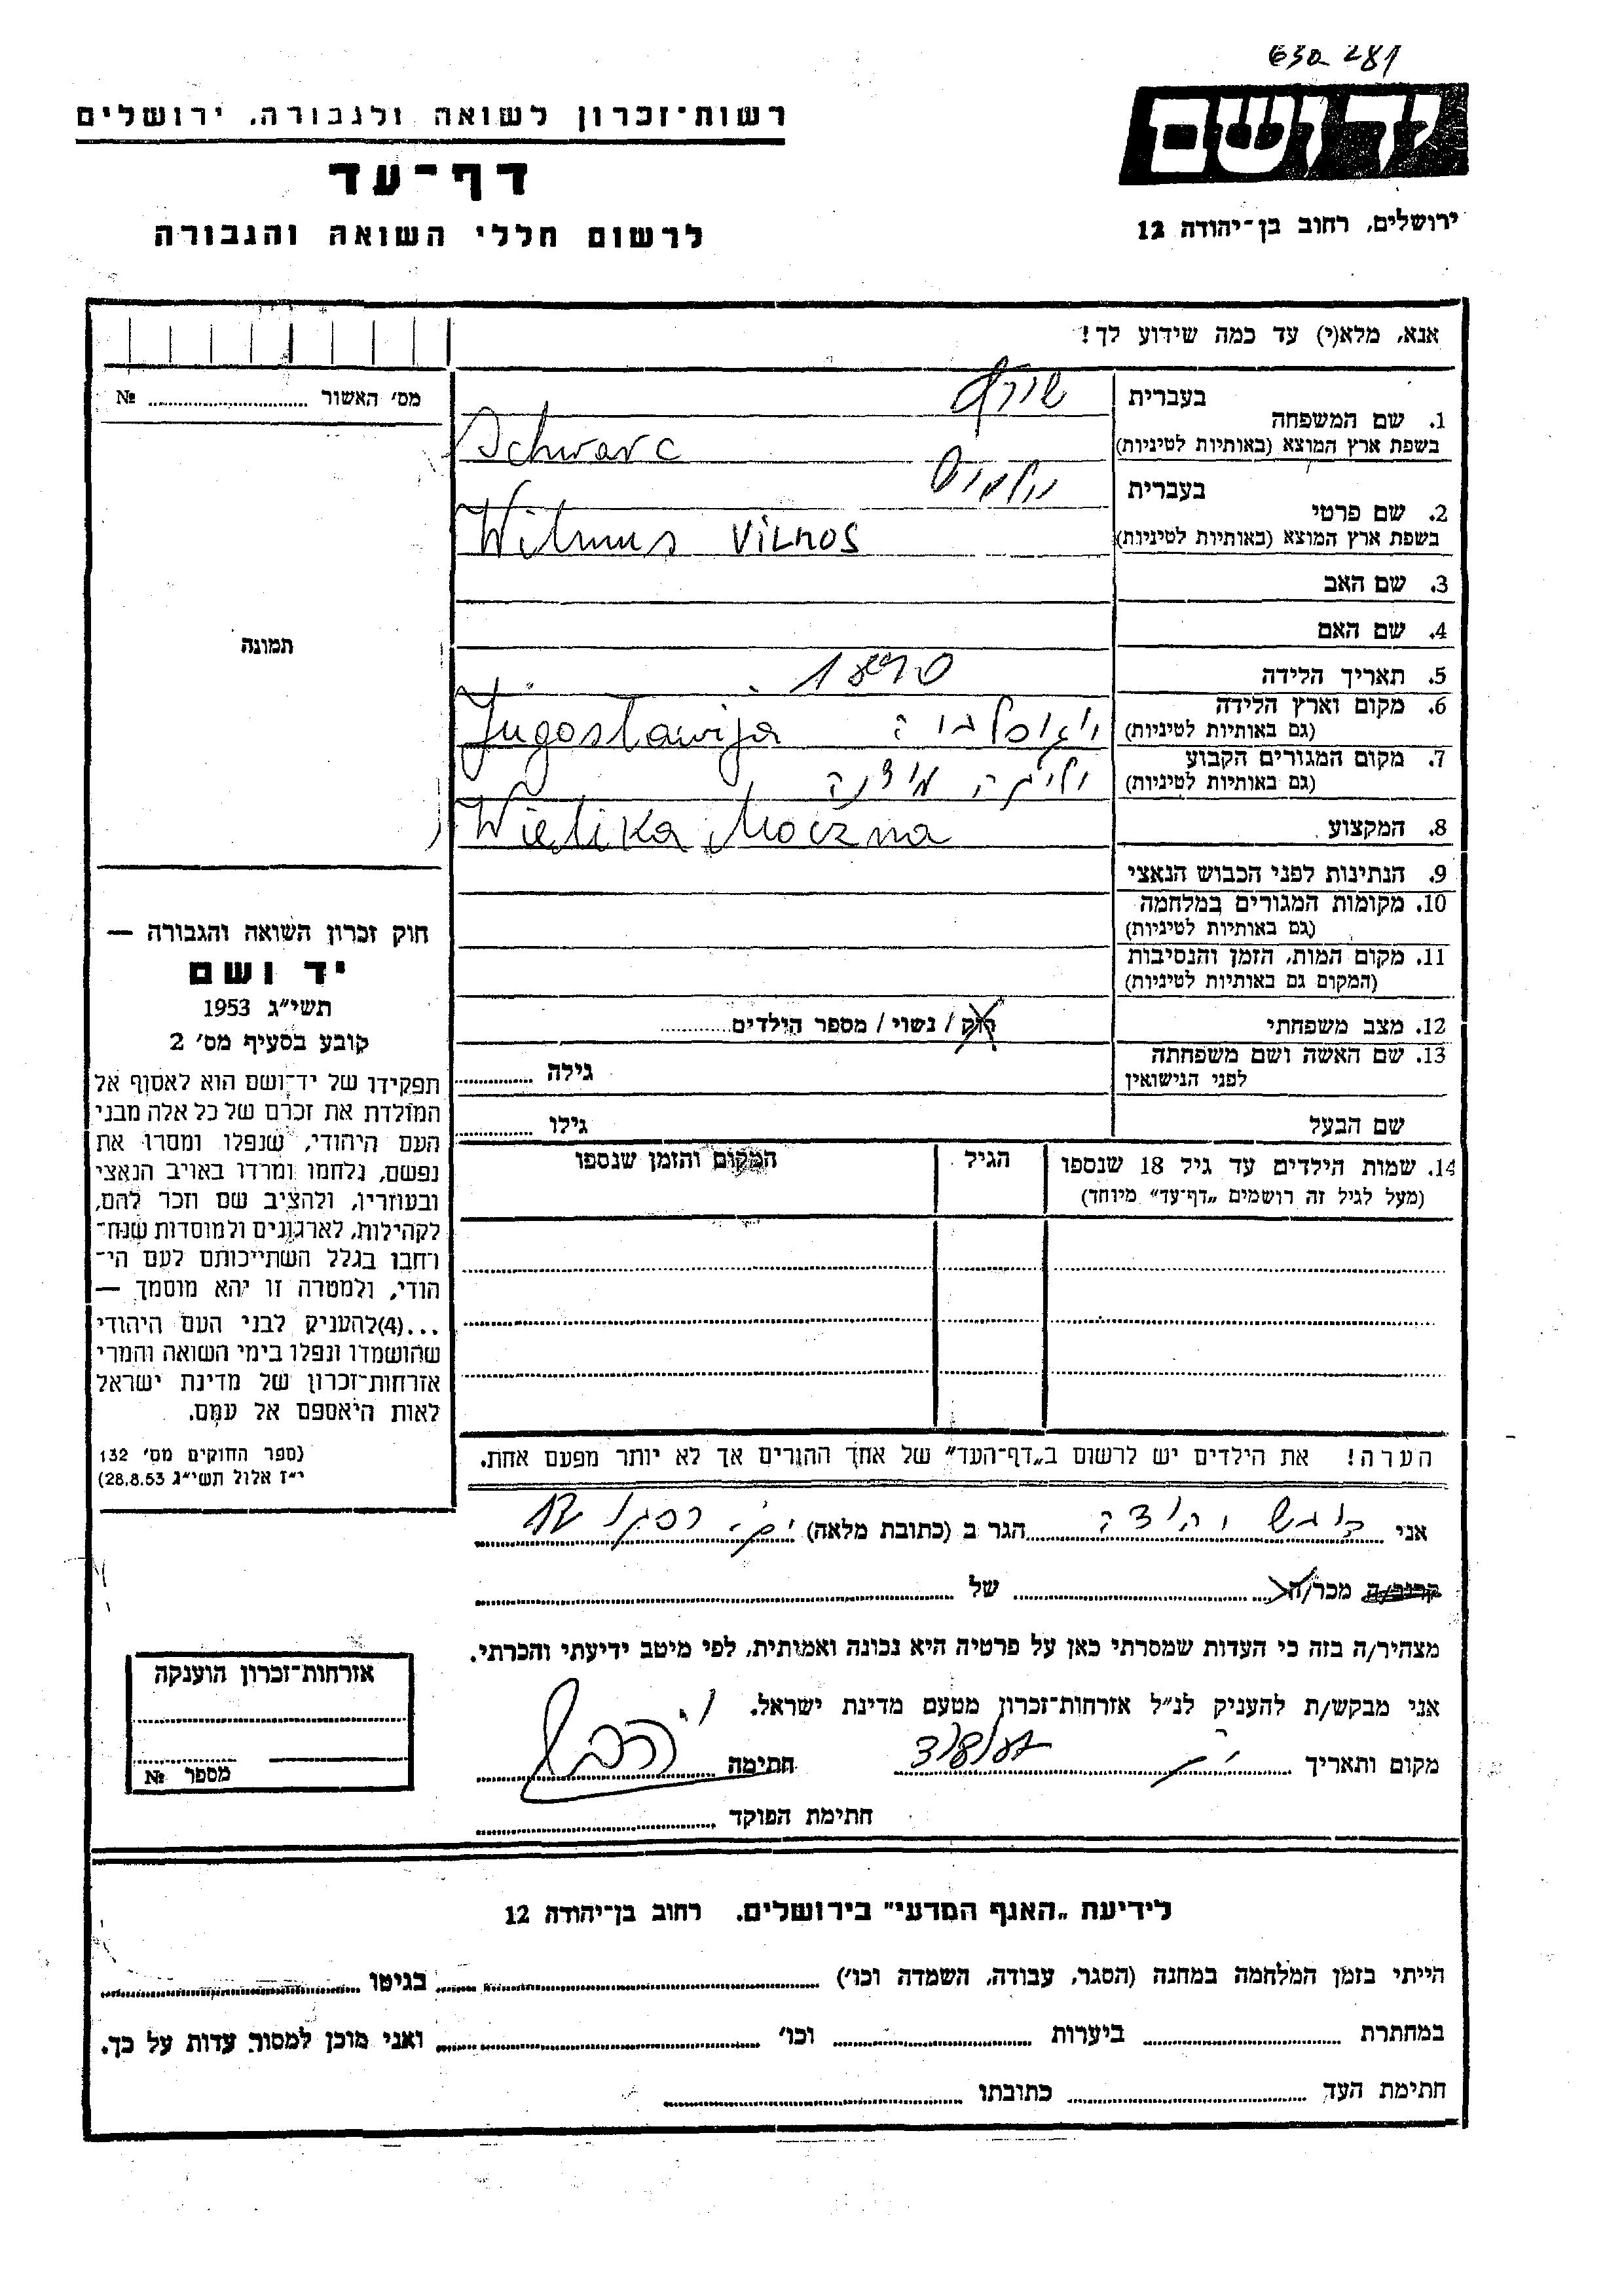 630 281
יד ושם
רשות־זכרון לשואה ולגבורה, ירושלים
דף־עד
לרשום חללי השואה והגבורה
ירושלים, רחוב בן־יהודה 12
אנא, מלא(י) עד כמה שידוע לך!
מס׳ האשור № ........
1. שם המשפחה
בעברית
שורץ
בשפת ארץ המוצא (באותיות לטיניות)
Schwarc
2. שם פרטי
בעברית
וילמוס
בשפת ארץ המוצא (באותיות לטיניות)
Wilmus VILMOS
3. שם האב
4. שם האם
תמונה
5. תאריך הלידה
1890
6. מקום וארץ הלידה
(גם באותיות לטיניות)
יוגוסלביה Jugoslawija
7. מקום המגורים הקבוע
(גם באותיות לטיניות)
8. המקצוע
Wielika Moczna
9. הנתינות לפני הכבוש הנאצי
10. מקומות המגורים במלחמה
(גם באותיות לטיניות)
11. מקום המות, הזמן והנסיבות
(המקום גם באותיות לטיניות)
12. מצב משפחתי
רוק / נשוי / מספר הילדים........
13. שם האשה ושם משפחתה
לפני הנישואין
גילה ........
שם הבעל
גילו ........
14. שמות הילדים עד גיל 18 שנספו
(מעל לגיל זה רושמים „דף־עד" מיוחד)
הגיל
המקום והזמן שנספו
חוק זכרון השואה והגבורה —
יד ושם
תשי״ג 1953
קובע בסעיף מס׳ 2
תפקידו של יד־ושם הוא לאסוף אל
המולדת את זכרם של כל אלה מבני
העם היהודי, שנפלו ומסרו את
נפשם, נלחמו ומרדו באויב הנאצי
ובעוזריו, ולהציב שם וזכר להם,
לקהילות, לארגונים ולמוסדות שנח־
רחבו בגלל השתייכותם לעם הי־
הודי, ולמטרה זו יהא מוסמך —
...(4)להעניק לבני העם היהודי
שהושמדו ונפלו בימי השואה והמרי
אזרחות־זכרון של מדינת ישראל
לאות היאספם אל עמם.
(ספר החוקים מס׳ 132
י״ז אלול תשי״ג 28.8.53)
הערה! את הילדים יש לרשום ב„דף־העד" של אחד ההורים אך לא יותר מפעם אחת.
אני ........ הגר ב (כתובת מלאה) ........
קרוב/ה מכר/ה ........ של ........
מצהיר/ה בזה כי העדות שמסרתי כאן על פרטיה היא נכונה ואמותית, לפי מיטב ידיעתי והכרתי.
אני מבקש/ת להעניק לנ״ל אזרחות־זכרון מטעם מדינת ישראל.
מקום ותאריך ........ חתימה ........
חתימת הפוקד ........
אזרחות־זכרון הוענקה
מספר №
לידיעת „האגף המדעי" בירושלים, רחוב בן־יהודה 12
הייתי בזמן המלחמה במחנה (הסגר, עבודה, השמדה וכו׳) ........ בגיטו ........
במחתרת ........ ביערות ........ וכו׳ ........ ואני מוכן למסור עדות על כך.
חתימת העד ........ כתובתו ........